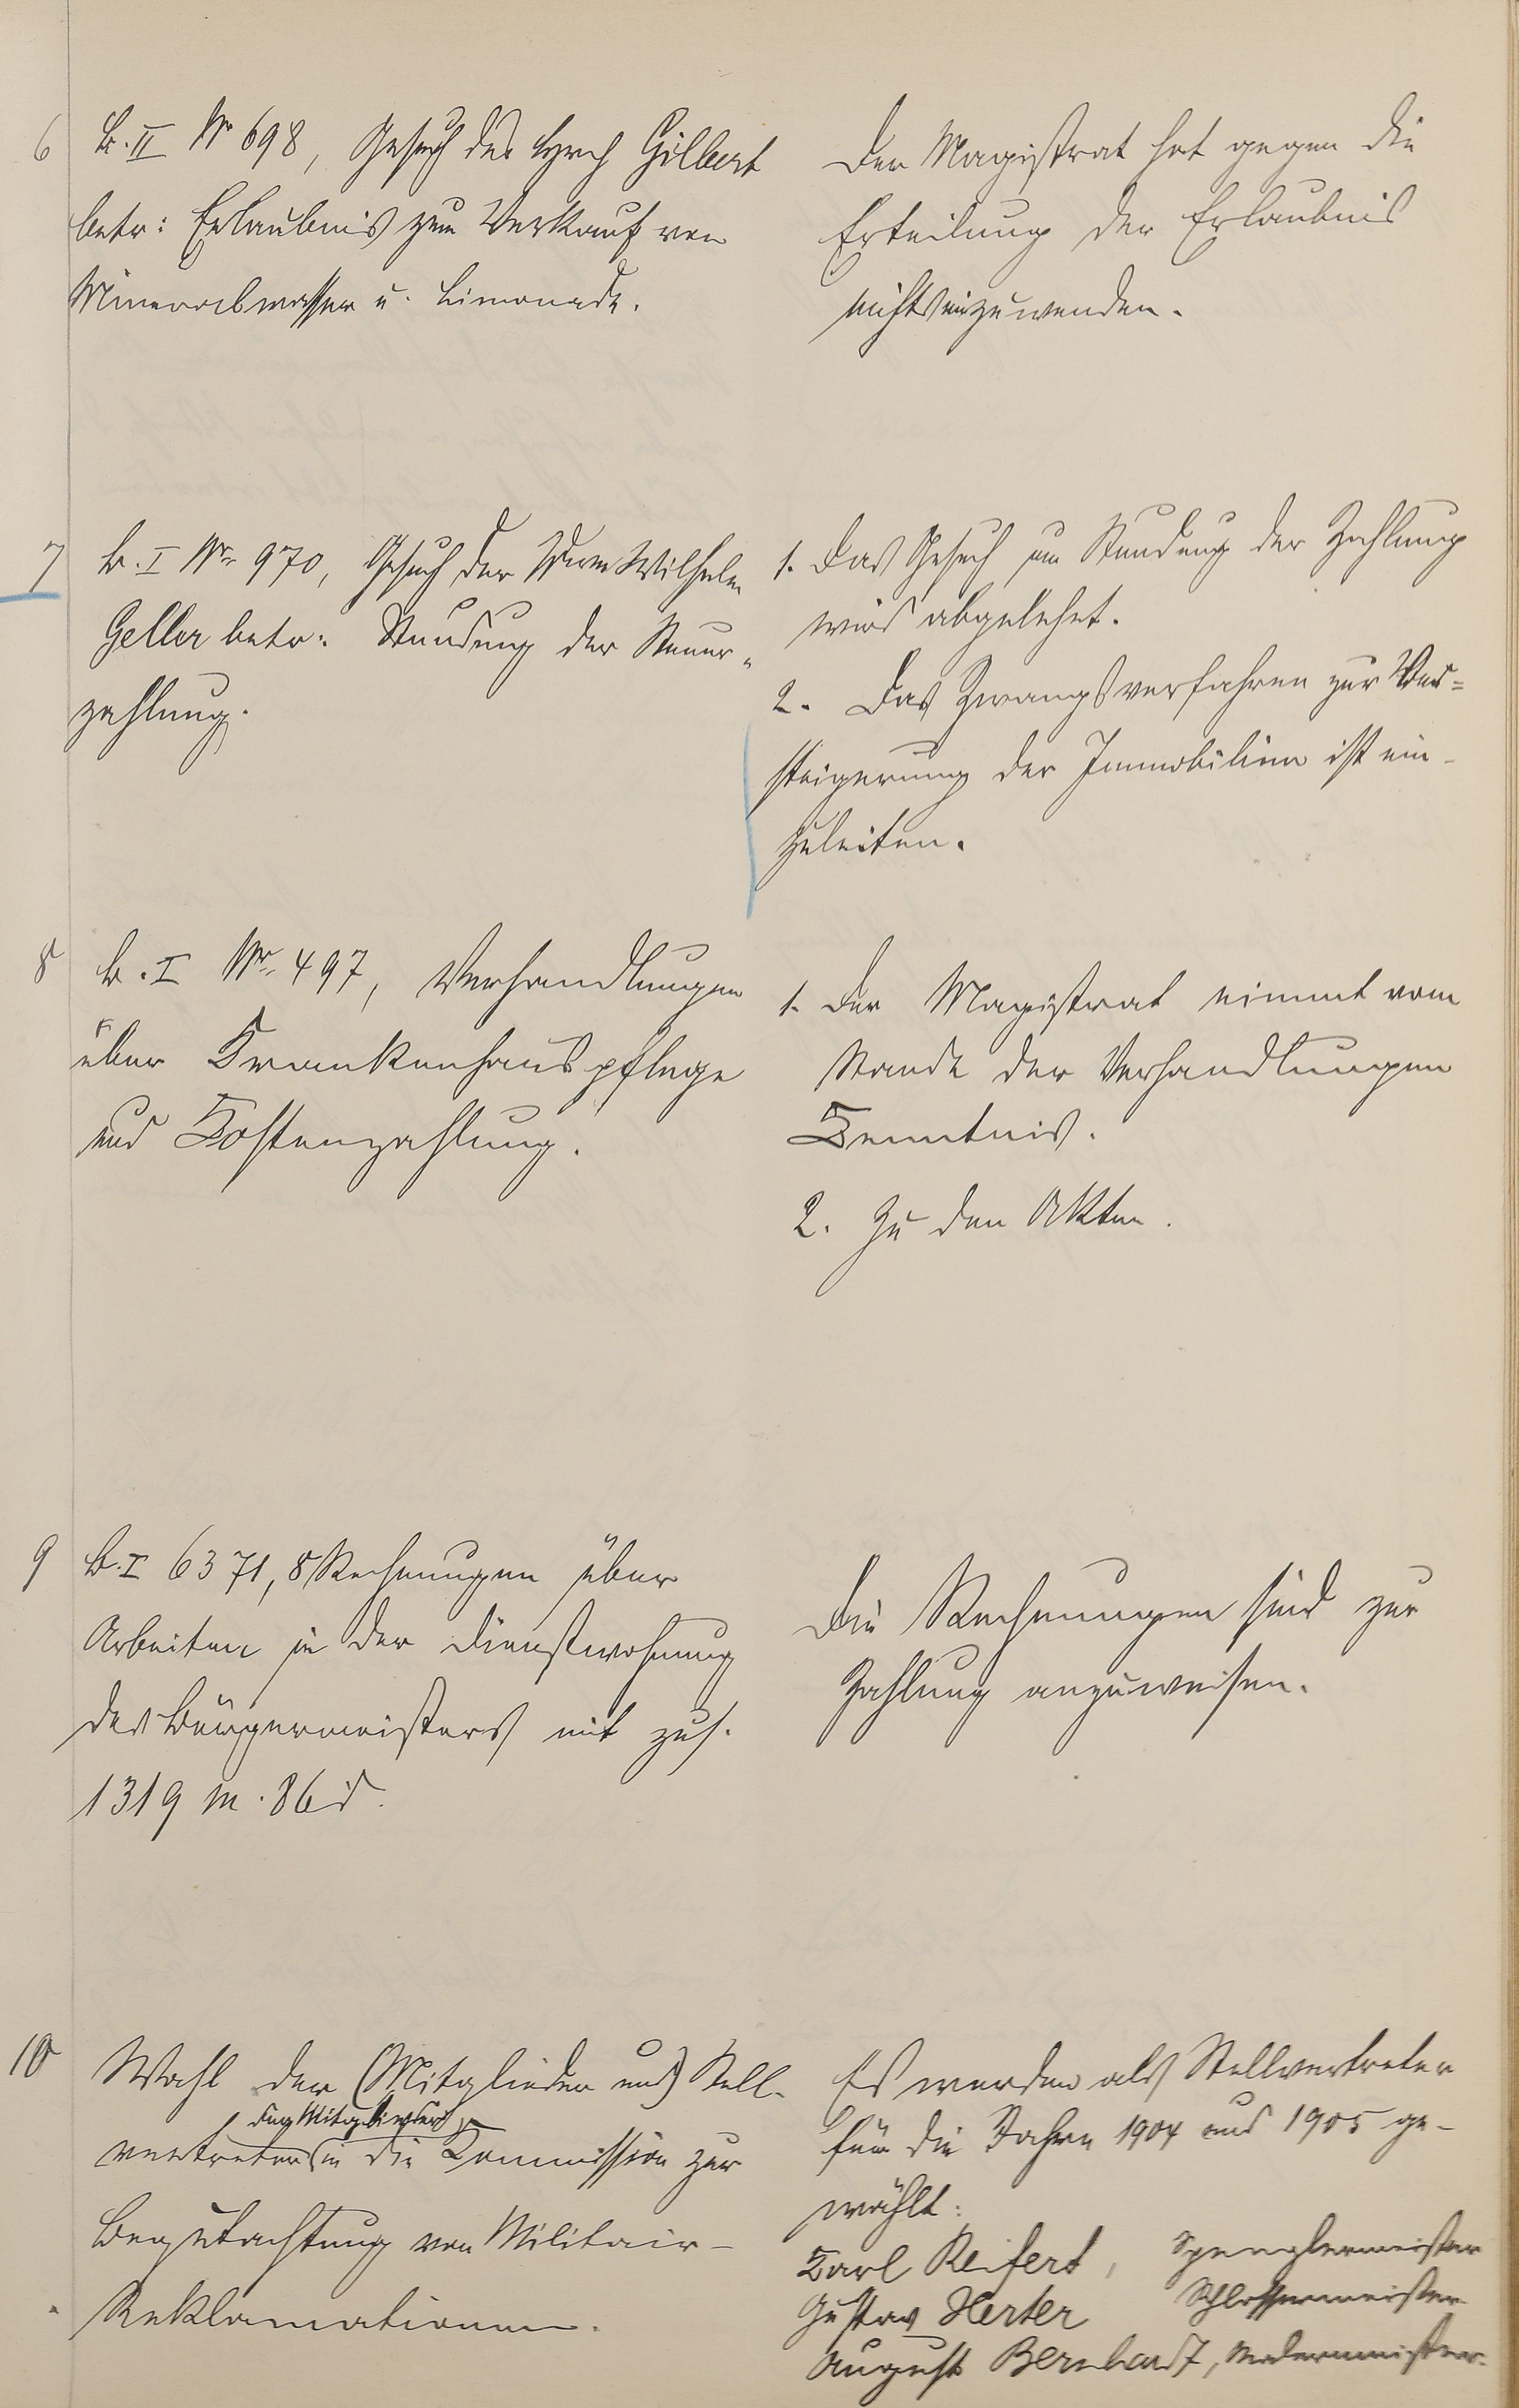 6 B. II Nr 698, Gesuch des Gilbert
betr: Erlaubnis zum Verkauf von
Mineralwasser u. Limonade.
Der Magistrat hat gegen die
Erteilung der Erlaubnis
nichts einzuwenden.
7 B. I Nr. 970, Gesuch der Wilhelm
Geller betr: Stundung der Steuer-
zahlung.
1. Das Gesuch um Stundung der Zahlung
wird abgelehnt.
2. Das Zwangsverfahren zur Ver=
steigerung der Immobilien ist ein-
zuleiten.
8 B. I Nr. 497, Verhandlungen
über Krankenhauspflege
und Kostenzahlung.
1. Der Magistrat nimmt vom
Stande der Verhandlungen
Kenntnis.
2. Zu den Akten.
9 B. I 6371, 8 Rechnungen über
Arbeiten in der Dienstwohnung
des Bürgermeisters mit zus.
1319 M. 86 d.
Die Rechnungen sind zur
Zahlung anzuweisen.
10 Wahl der (Mitglieder und) Stell-
der Mitglieder
vertreter in die Kommission zur
Begutachtung von Militair-
Reklamationen.
Es werden als Stellvertreter
für die Jahre 1904 und 1905 ge-
wählt:
Karl Reifert, Spenglermeister
Gustav Herter Schlossermeister
August Bernhardt, Malermeister.